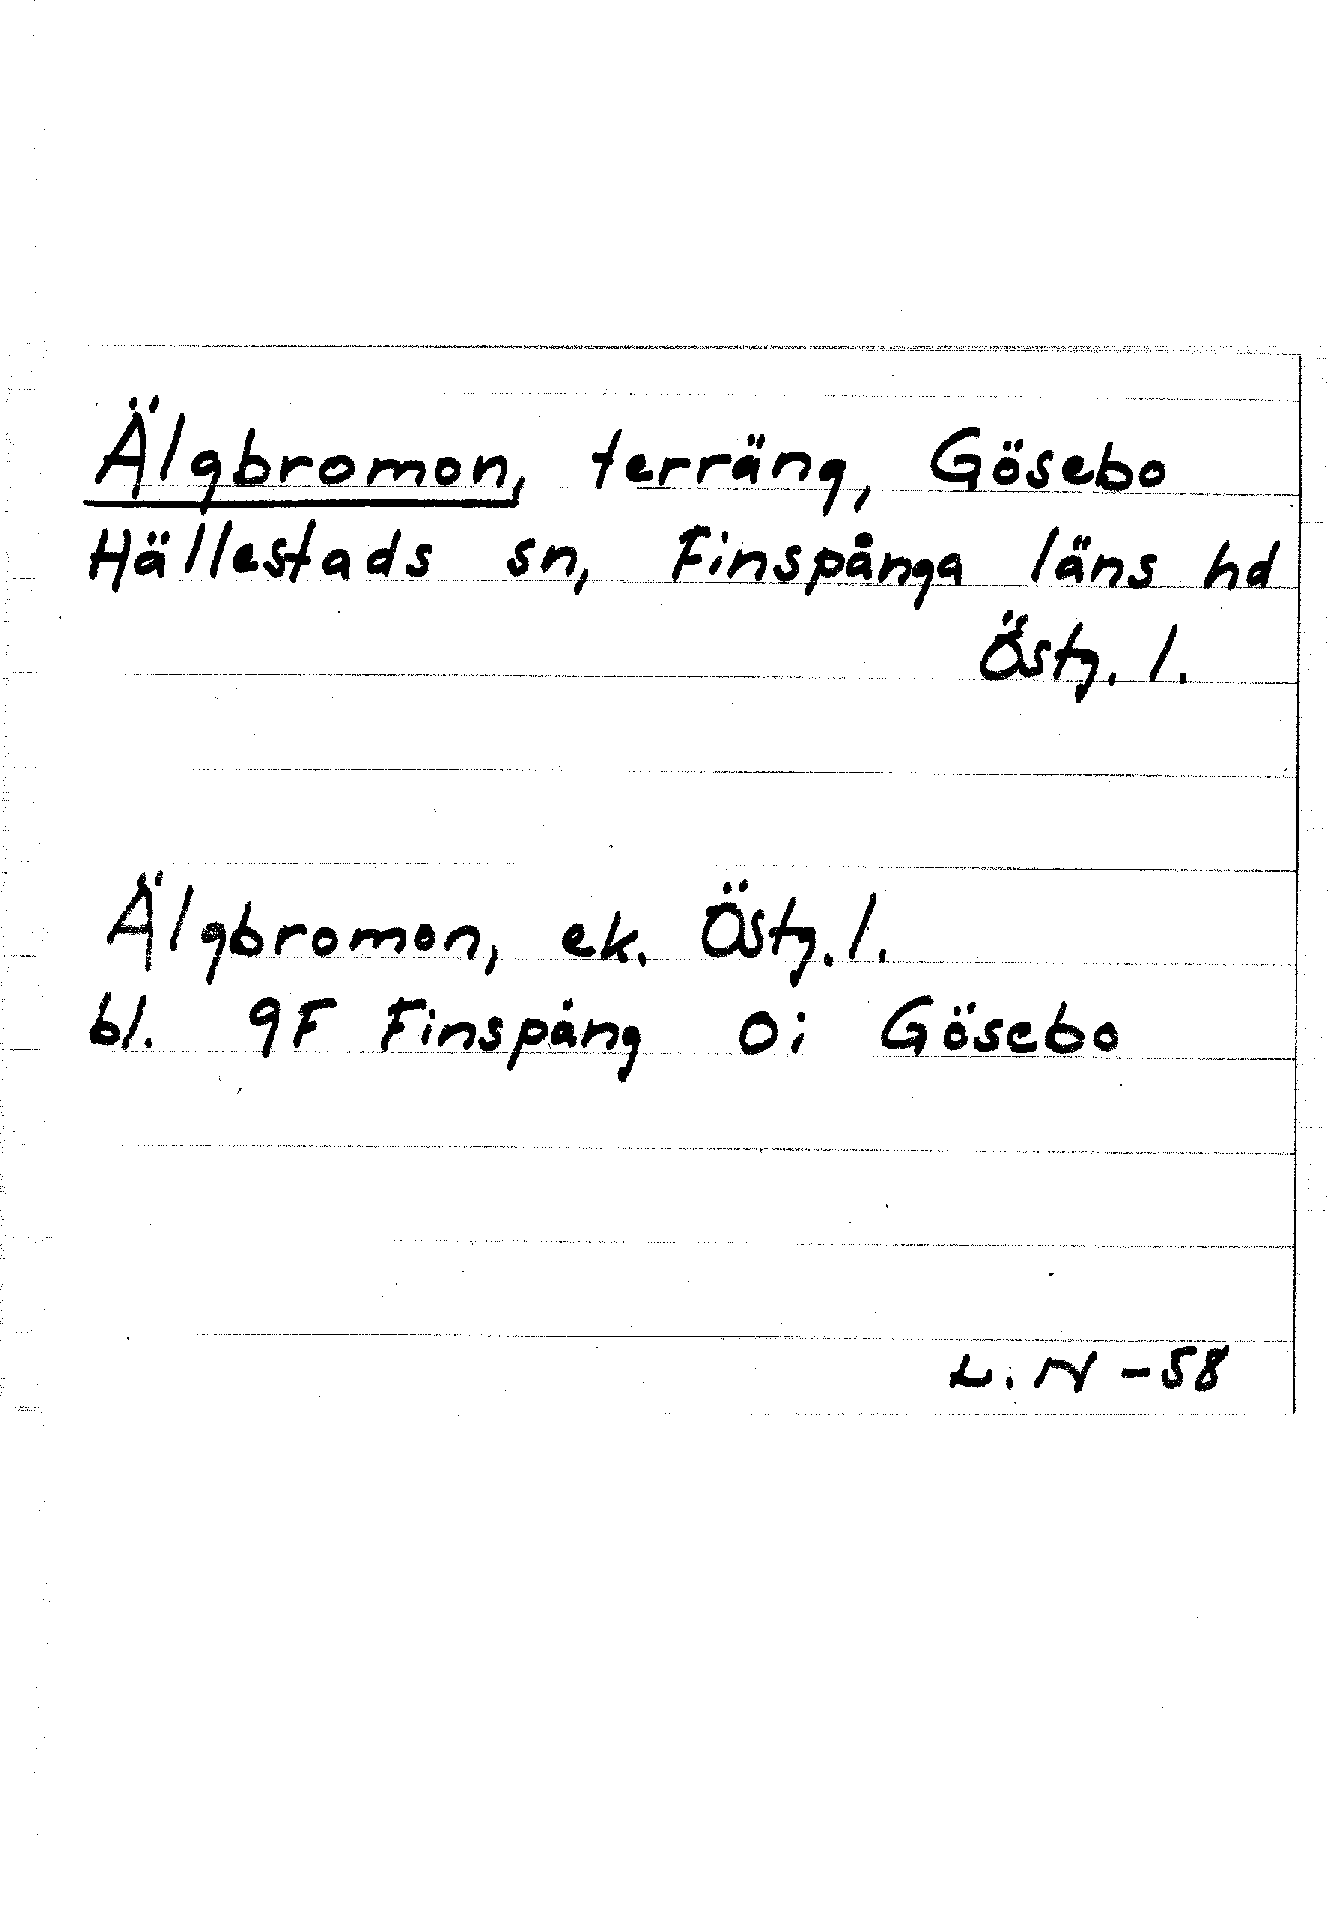 Älgbromon, terräng, Gösebo
Hällestads sn, Finspånga läns hd
Östg. l.
Älgbromon, ek. Östg. l.
bl. 9F Finspång 0i Gösebo
L. N -58